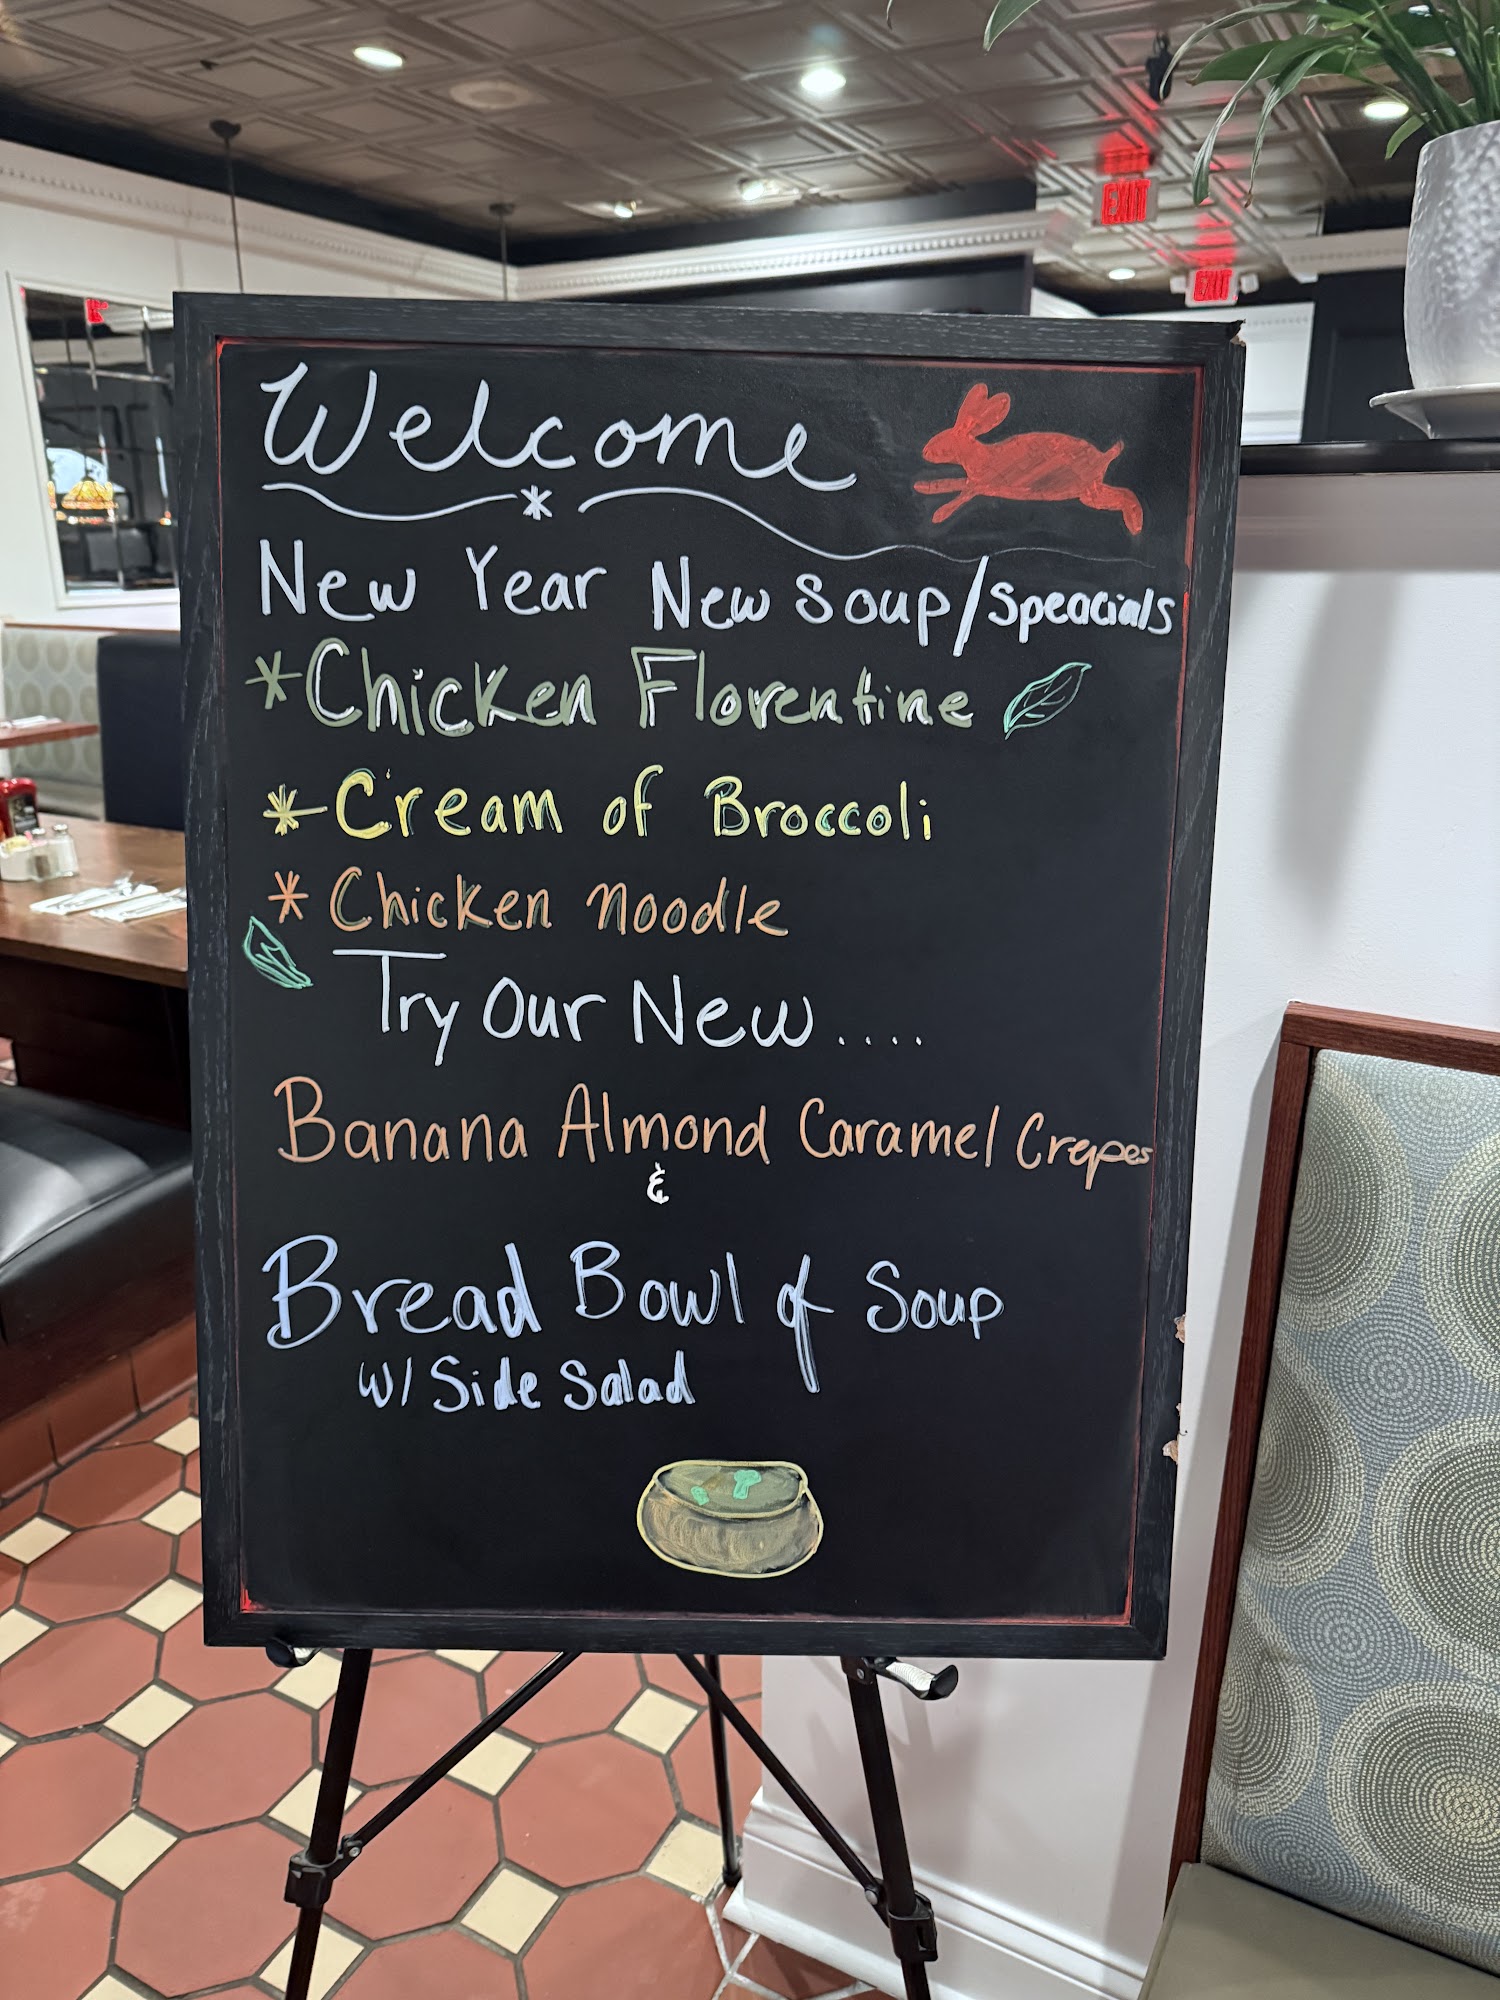 EXIT
EXIT
Welcome
New Year New Soup/Speacials
*Chicken Florentine
*Cream of Broccoli
*Chicken noodle
Try Our New....
Banana Almond Caramel Crepes
&
Bread Bowl of Soup
w/ Side Salad